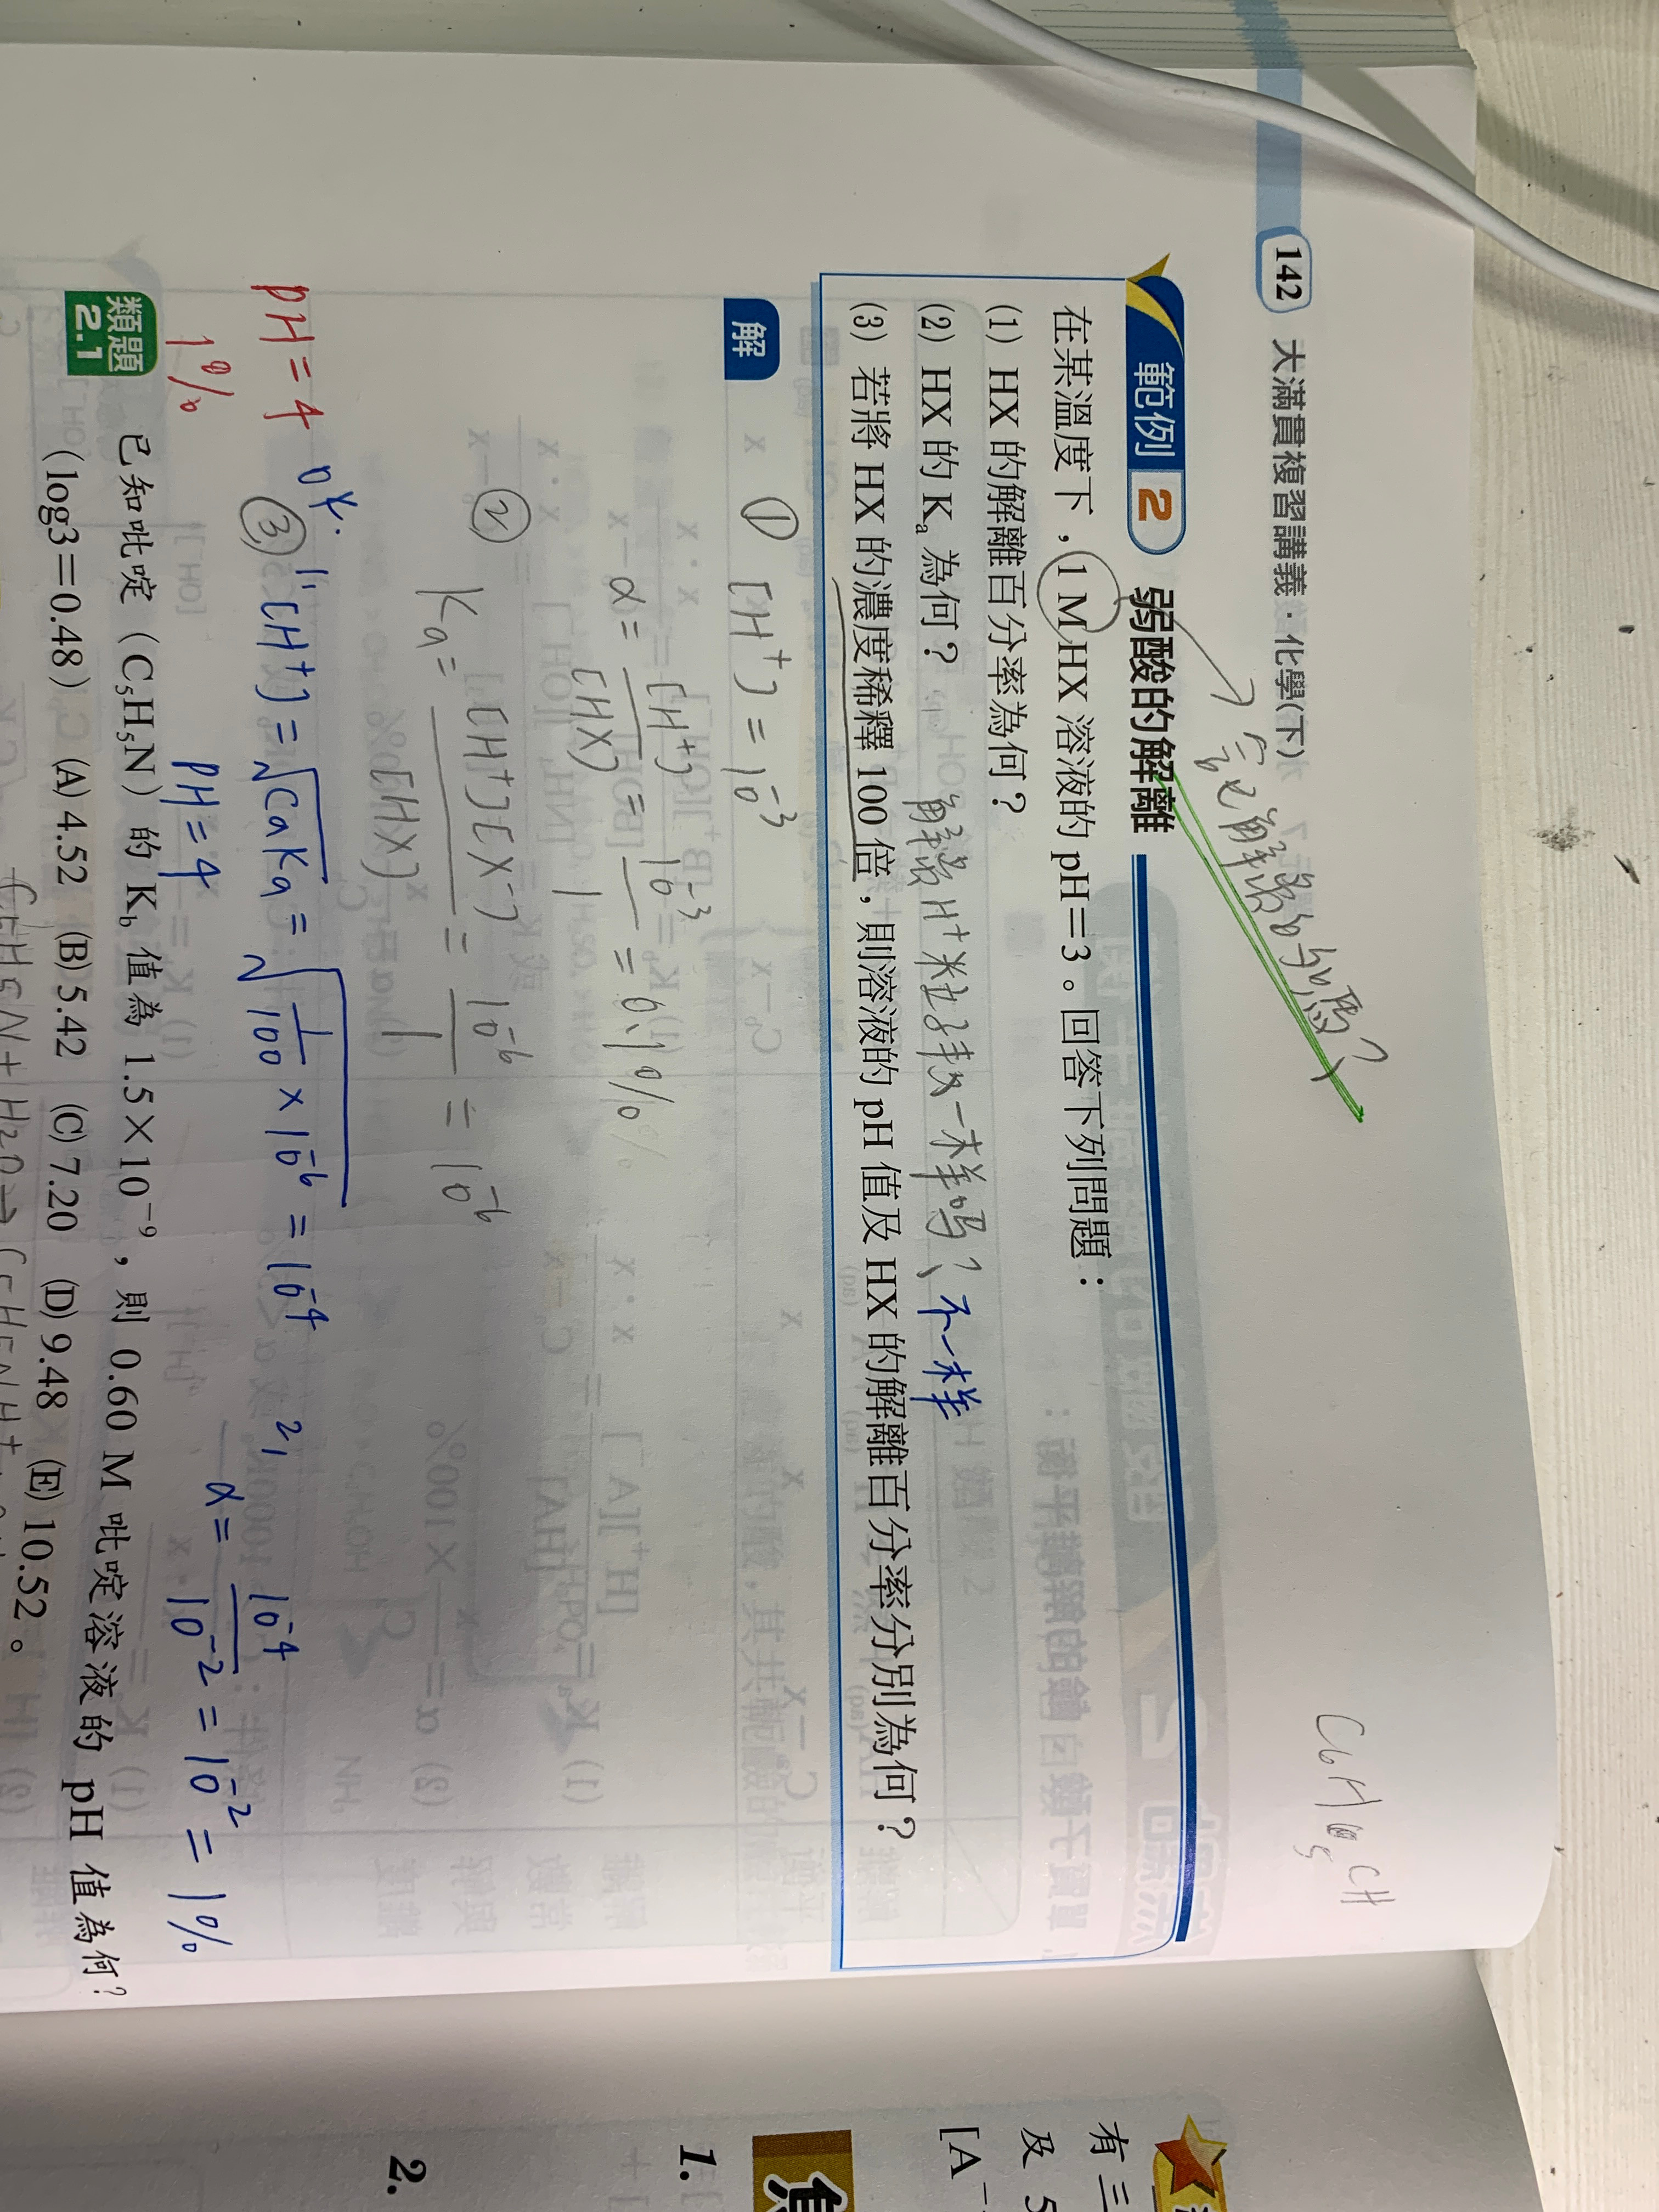 142 大滿貫複習講義.化學(下)
C6H5CH
完全解離的嗎?
範例 2 弱酸的解離
在某溫度下,1 M HX 溶液的 pH=3。回答下列問題:
(1) HX 的解離百分率為何?
(2) HX 的 Ka 為何?
解離H⁺粒子數一样吗? 不一样
(3) 若將 HX 的濃度稀釋 100 倍,則溶液的 pH 值及 HX 的解離百分率分別為何?
解
① [H⁺] = 10⁻³
α = [H⁺]/[HX] = 10⁻³/1 = 0.1%
② Ka = [H⁺][X⁻]/[HX] = 10⁻⁶/1 = 10⁻⁶
③ 1, [H⁺] = √CaKa = √1/100 × 10⁻⁶ = 10⁻⁴
pH = 4
2, α = 10⁻⁴/10⁻² = 10⁻² = 1%
pH = 4
1%
類題 2.1
已知吡啶(C₅H₅N)的 Kb 值為 1.5×10⁻⁹,則 0.60 M 吡啶溶液的 pH 值為何?
(log3=0.48) (A) 4.52 (B) 5.42 (C) 7.20 (D) 9.48 (E) 10.52。
有三
及 5
[A⁻
1.
2.